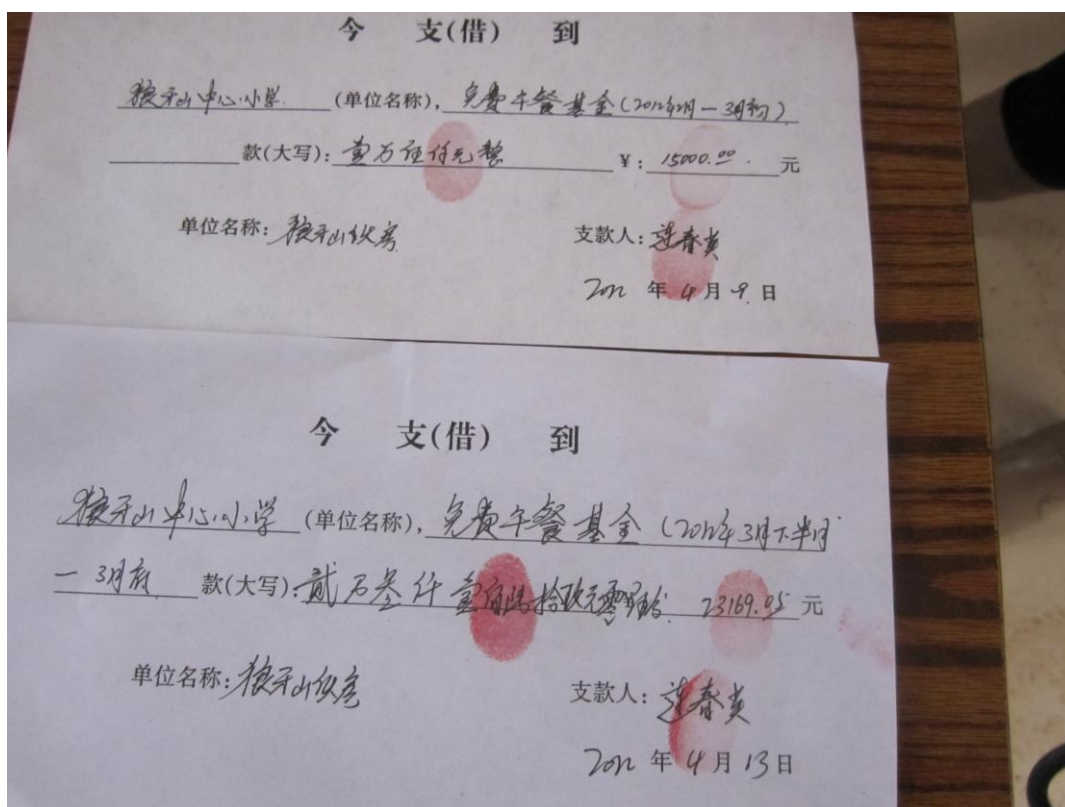 今 支(借) 到
狼牙山中心小学 (单位名称), 免费午餐基金(2012年2月-3月初)
款(大写): 壹万伍仟元整 ¥: 15000.00. 元
单位名称: 狼牙山伙房 支款人: 连春芡
2012 年 4 月 9 日
今 支(借) 到
狼牙山中心小学 (单位名称), 免费午餐基金(2012年3月下半月
- 3月底 款(大写): 贰万叁仟壹佰陆拾玖元零伍分 23169.05 元
单位名称: 狼牙山伙房 支款人: 连春芡
2012 年 4 月 13 日